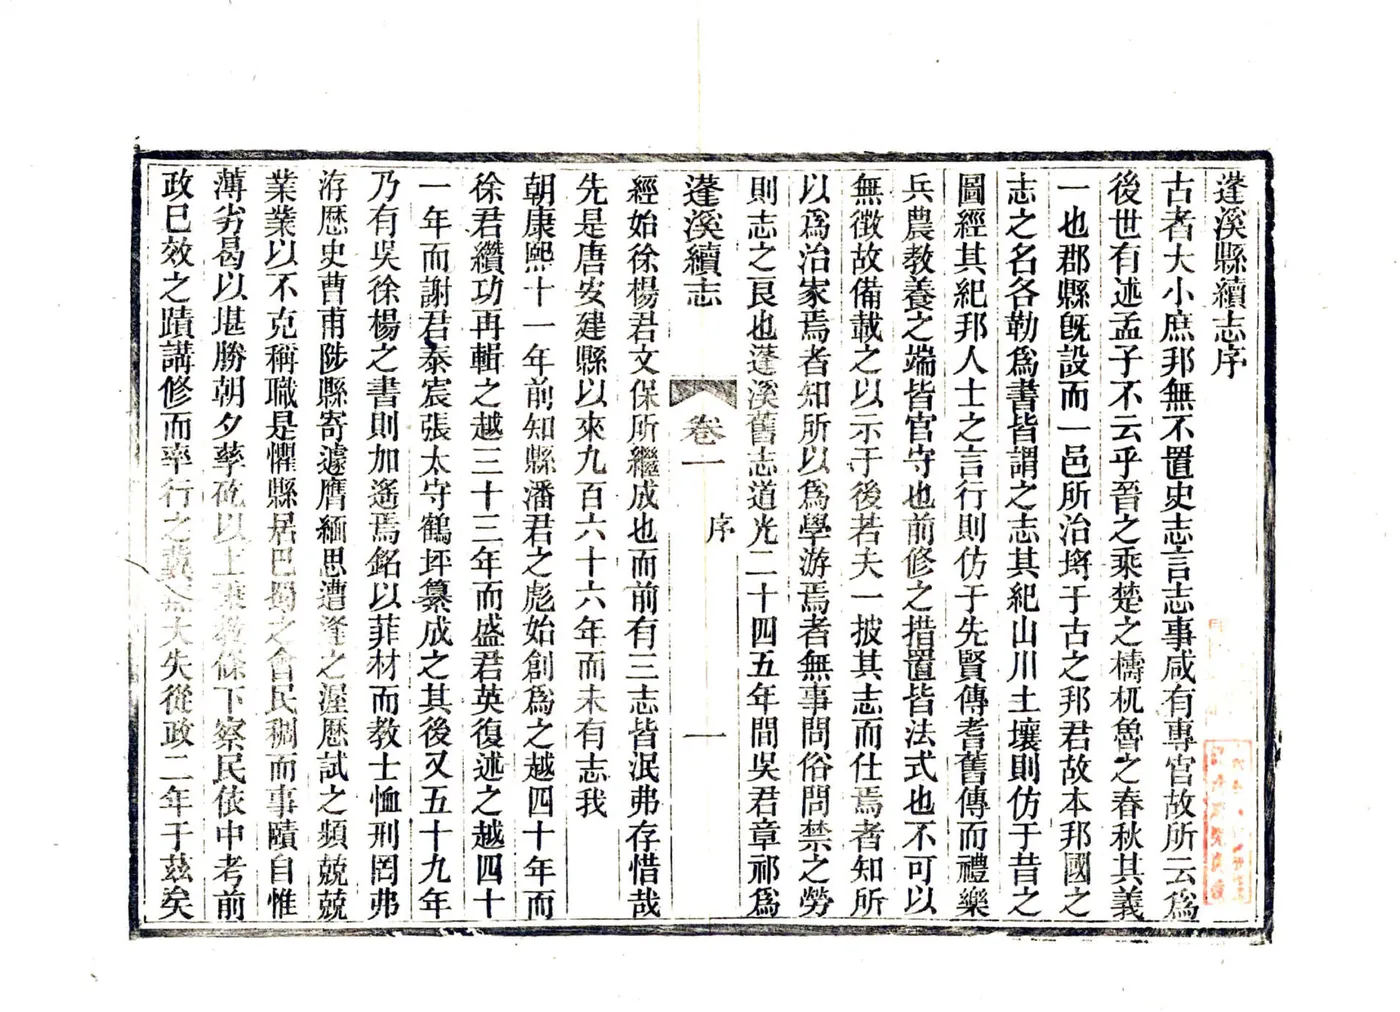 蓬溪縣續志序
古者大小庶邦無不置史志言志事咸有專官故所云爲
後世有述孟子不云乎晉之乘楚之檮杌魯之春秋其義
一也郡縣旣設而一邑所治埒于古之邦君故本邦國之
志之名各勒爲書皆謂之志其紀山川土壤則仿于昔之
圖經其紀邦人士之言行則仿于先賢傳耆舊傳而禮樂
兵農教養之端皆官守也前修之措置皆法式也不可以
無徵故備載之以示于後若夫一披其志而仕焉者知所
以爲治家焉者知所以爲學游焉者無事問俗問禁之勞
則志之良也蓬溪舊志道光二十四五年間吳君章祁爲
蓬溪續志 卷一 序 一
經始徐楊君文保所繼成也而前有三志皆泯弗存惜哉
先是唐安建縣以來九百六十六年而未有志我
朝康熙十一年前知縣潘君之彪始創爲之越四十年而
徐君纘功再輯之越三十三年而盛君英復述之越四十
一年而謝君泰宸張太守鶴坪纂成之其後又五十九年
乃有吳徐楊之書則加遙焉銘以菲材而教士恤刑罔弗
洊歷史曹甫陟縣寄遽膺緬思遭逢之渥歷試之頻兢兢
業業以不克稱職是懼縣居巴蜀之會民稠而事賾自惟
薄劣曷以堪勝朝夕孳矻以上稟教條下察民依中考前
政已效之蹟講修而率行之冀無大失從政二年于茲矣